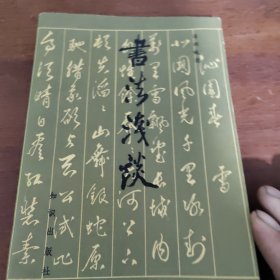 書法淺談
沁園春 雪
北國風光千里冰封
萬里雪飄望長城內
頓失滔滔山舞銀蛇原
馳臘象欲與天公試比
高須晴日看紅裝素
知识出版社